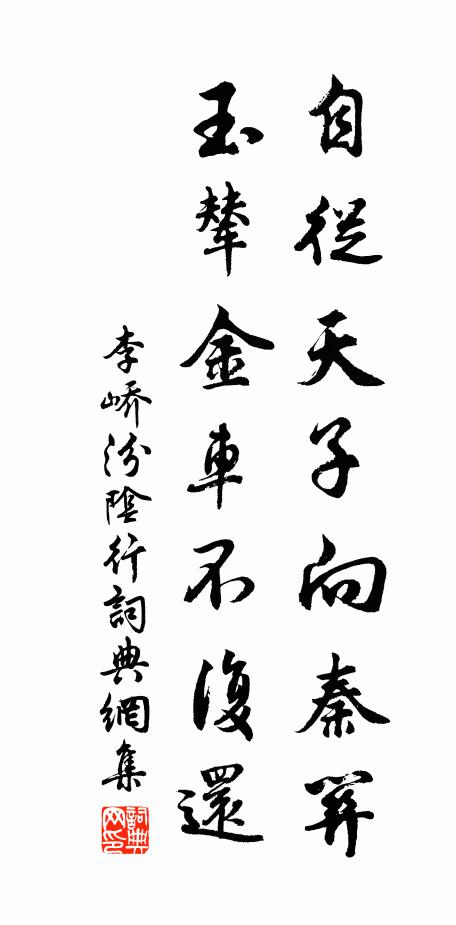 自從天子向秦關
玉輦金車不復還
李嶠汾陰行詞典網集
詞典网印